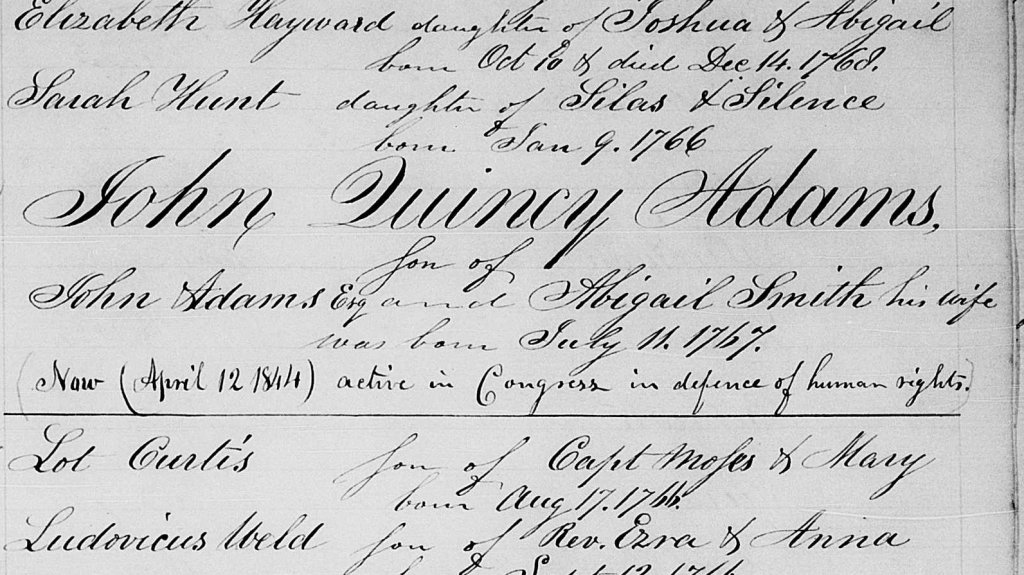 Elizabeth Hayward daughter of Joshua & Abigail
born Oct 10 & died Dec 14. 1768.
Sarah Hunt daughter of Silas & Silence
born Jan 9. 1766
John Quincy Adams,
son of
John Adams Esq and Abigail Smith his wife
was born July 11. 1767.
(Now (April 12 1844) active in Congress in defence of human rights.)
Lot Curtis son of Capt Moses & Mary
born Aug 17. 1766.
Ludovicus Weld son of Rev. Ezra & Anna
born Sept 12. 1766